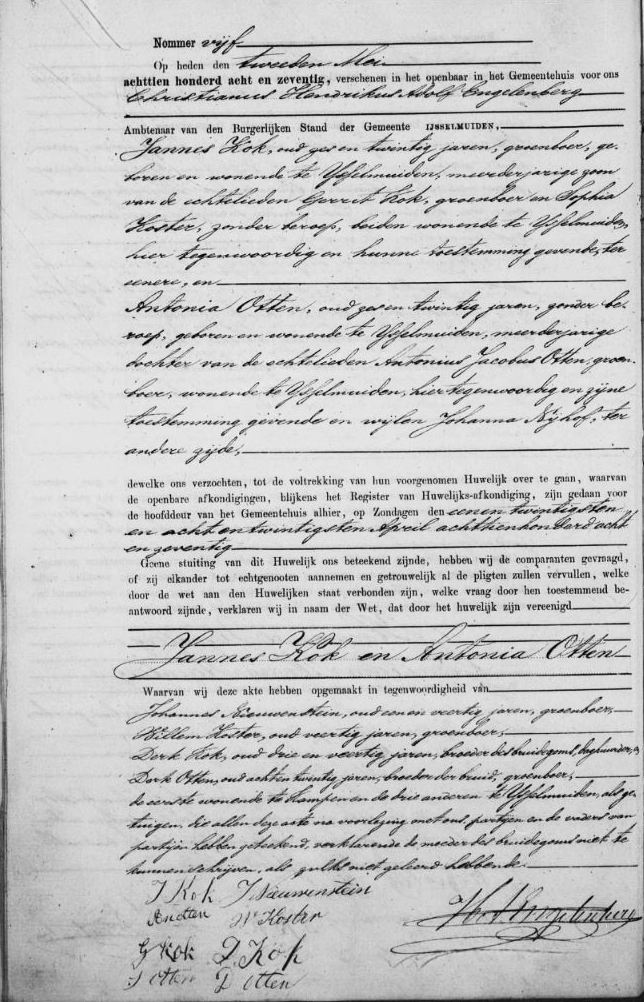 Nommer vijf
Op heden den tweeden Mei
achttien honderd acht en zeventig, verschenen in het openbaar in het Gemeentehuis voor ons
Christianus Hendrikus Adolf Engelenberg
Ambtenaar van den Burgerlijken Stand der Gemeente IJSSELMUIDEN,
Jannes Kok, oud zes en twintig jaren, groenboer, ge-
boren en wonende te IJsselmuiden, meerderjarige zoon
van de echtelieden Gerrit Kok, groenboer en Sophia
Koster, zonder beroep, beiden wonende te IJsselmuiden,
hier tegenwoordig en hunne toestemming gevende, ter
eenere, en
Antonia Otten, oud zes en twintig jaren, zonder be-
roep, geboren en wonende te IJsselmuiden, meerderjarige
dochter van de echtelieden Antonius Jacobus Otten, groen-
boer, wonende te IJsselmuiden, hier tegenwoordig en zijne
toestemming gevende en wijlen Johanna Nijhof, ter
andere zijde,
dewelke ons verzochten, tot de voltrekking van hun voorgenomen Huwelijk over te gaan, waarvan
de openbare afkondigingen, blijkens het Register van Huwelijks-afkondiging, zijn gedaan voor
de hoofddeur van het Gemeentehuis alhier, op Zondagen den eenen twintigsten
en acht en twintigsten April achttienhonderd acht
en zeventig
Geene stuiting van dit Huwelijk ons beteekend zijnde, hebben wij de comparanten gevraagd,
of zij elkander tot echtgenooten aannemen en getrouwelijk al de pligten zullen vervullen, welke
door de wet aan den Huwelijken staat verbonden zijn, welke vraag door hen toestemmend be-
antwoord zijnde, verklaren wij in naam der Wet, dat door het huwelijk zijn vereenigd
Jannes Kok en Antonia Otten
Waarvan wij deze akte hebben opgemaakt in tegenwoordigheid van
Johannes Nieuwenstein, oud een en veertig jaren, groenboer,
Willem Koster, oud veertig jaren, groenboer,
Derk Kok, oud drie en veertig jaren, broeder des bruidegoms, daghuurder, en
Derk Otten, oud acht en twintig jaren, broeder der bruid, groenboer,
de eerste wonende te Kampen en de drie anderen te IJsselmuiden, als ge-
tuigen, die allen deze acte na voorlezing met ons, partijen en de vaders van
partijen hebben geteekend, verklarende de moeder des bruidegoms niet te
kunnen schrijven, als zulks niet geleerd hebbende.
J Kok J Nieuwenstein
A Otten W Koster
G Kok D. Kok
J Otten D Otten